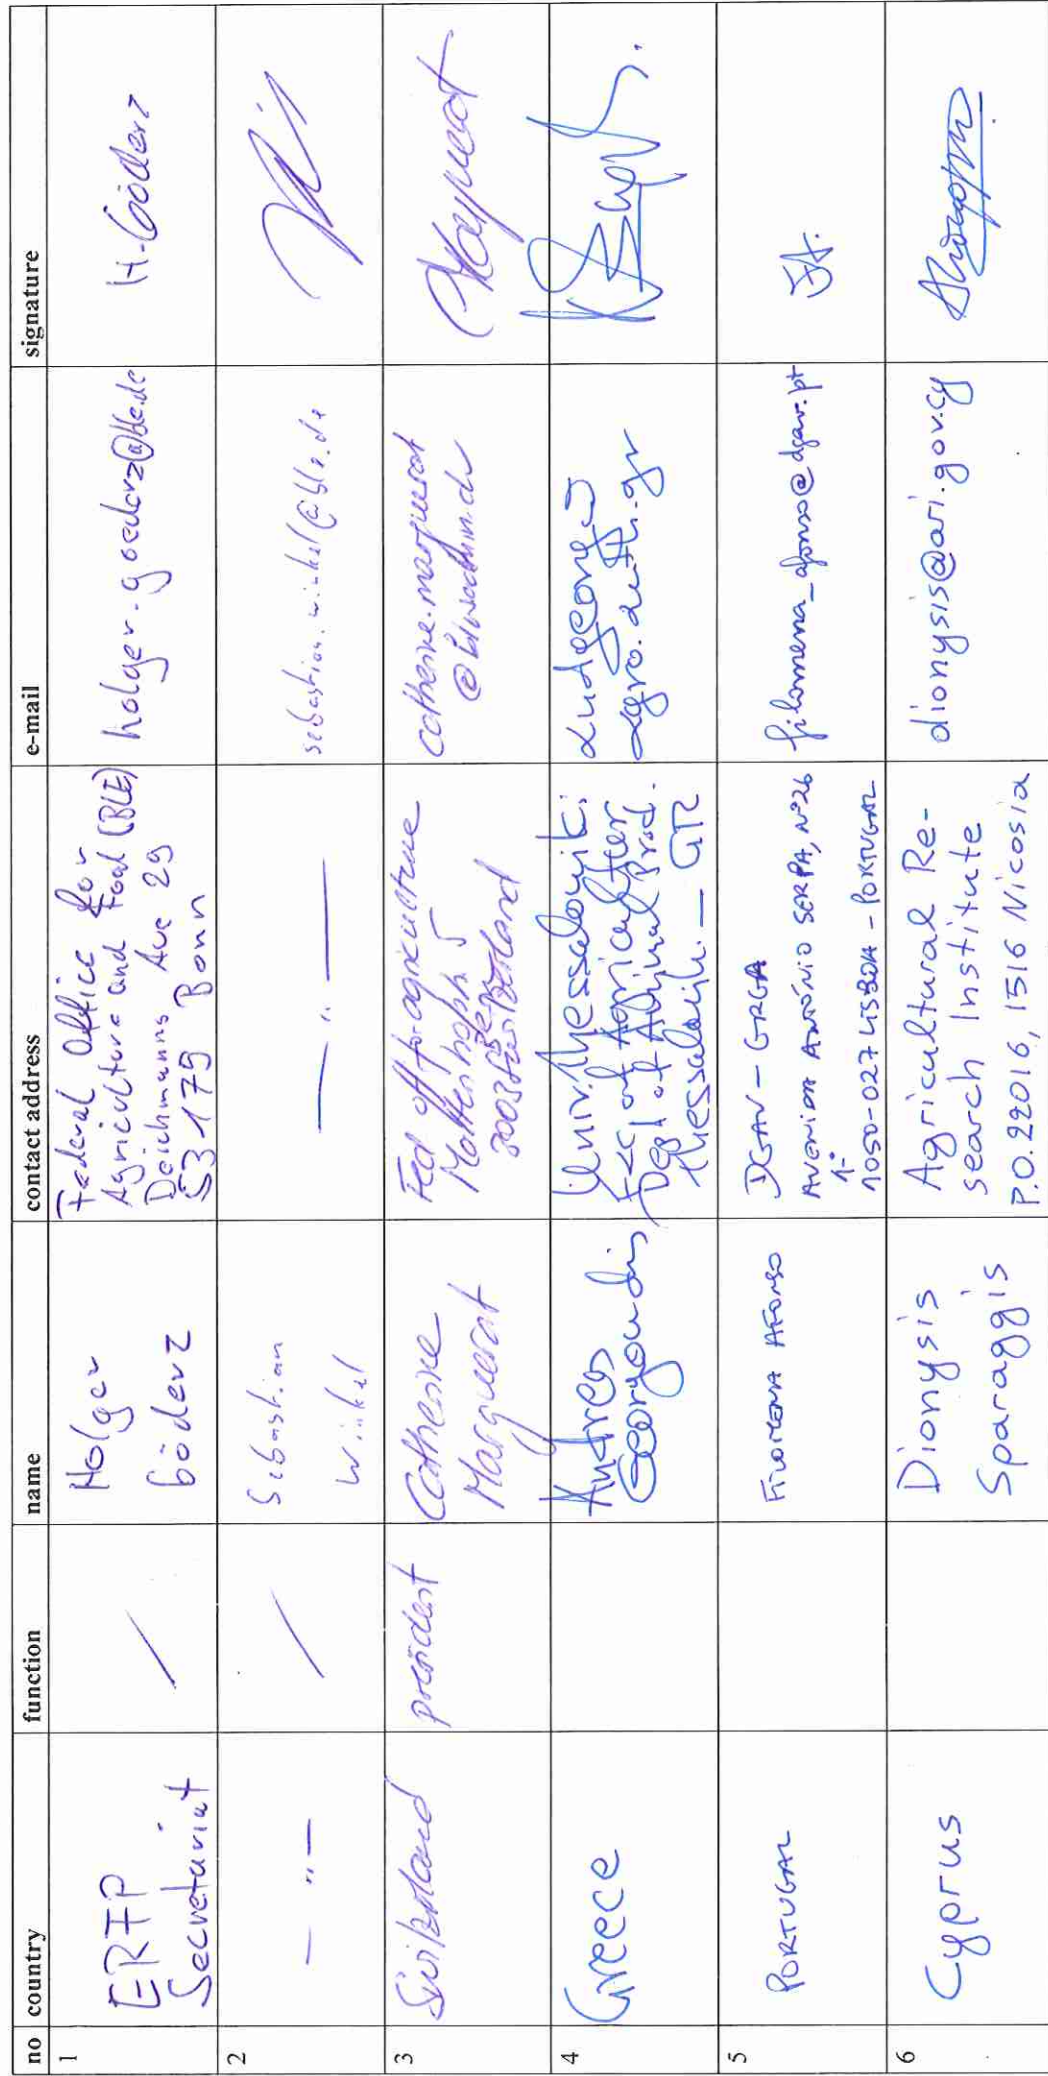 no country function name contact address e-mail signature
1
ERFP
Secretariat
/
Holger
Göderz
Federal Office for
Agriculture and Food (BLE)
Deichmanns Aue 29
53179 Bonn
holger.goederz@ble.de
H. Göderz
2
— " —
/
Sebastian
Winkel
— " —
sebastian.winkel@ble.de
3
président
Catherine
Marguerat
Fed off for agriculture
3003
catherine.marguerat
Marguerat
4
Greece
Andreas
Georgoudis
Univ. Thessaloniki
Fac of Agriculture
Dept of Animal Prod.
Thessaloniki — GR
andgeorg@
agro.auth.gr
5
PORTUGAL
FILOMENA AFONSO
DGAV - GRGA
AVENIDA ANTÓNIO SERPA, Nº 26
1º
1050-027 LISBOA - PORTUGAL
filomena_afonso@dgav.pt
FA.
6
Cyprus
Dionysis
Sparaggis
Agricultural Re-
search Institute
P.O. 22016, 1516 Nicosia
dionysis@ari.gov.cy